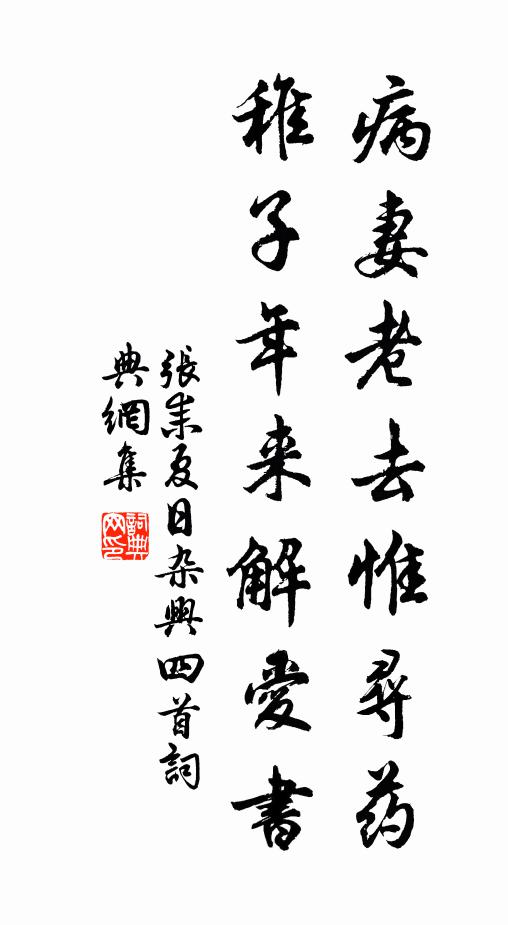 病妻老去惟尋药
稚子年来解愛書
張耒夏日杂興四首詞
典網集
詞典网印